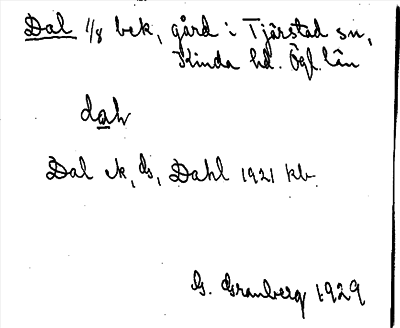 Dal 1/8 bek, gård i Tjärstad sn,
Kinda hd. Ögl. län
dal
Dal ek, ds, Dahl 1921 kb.
G. Granberg 1929